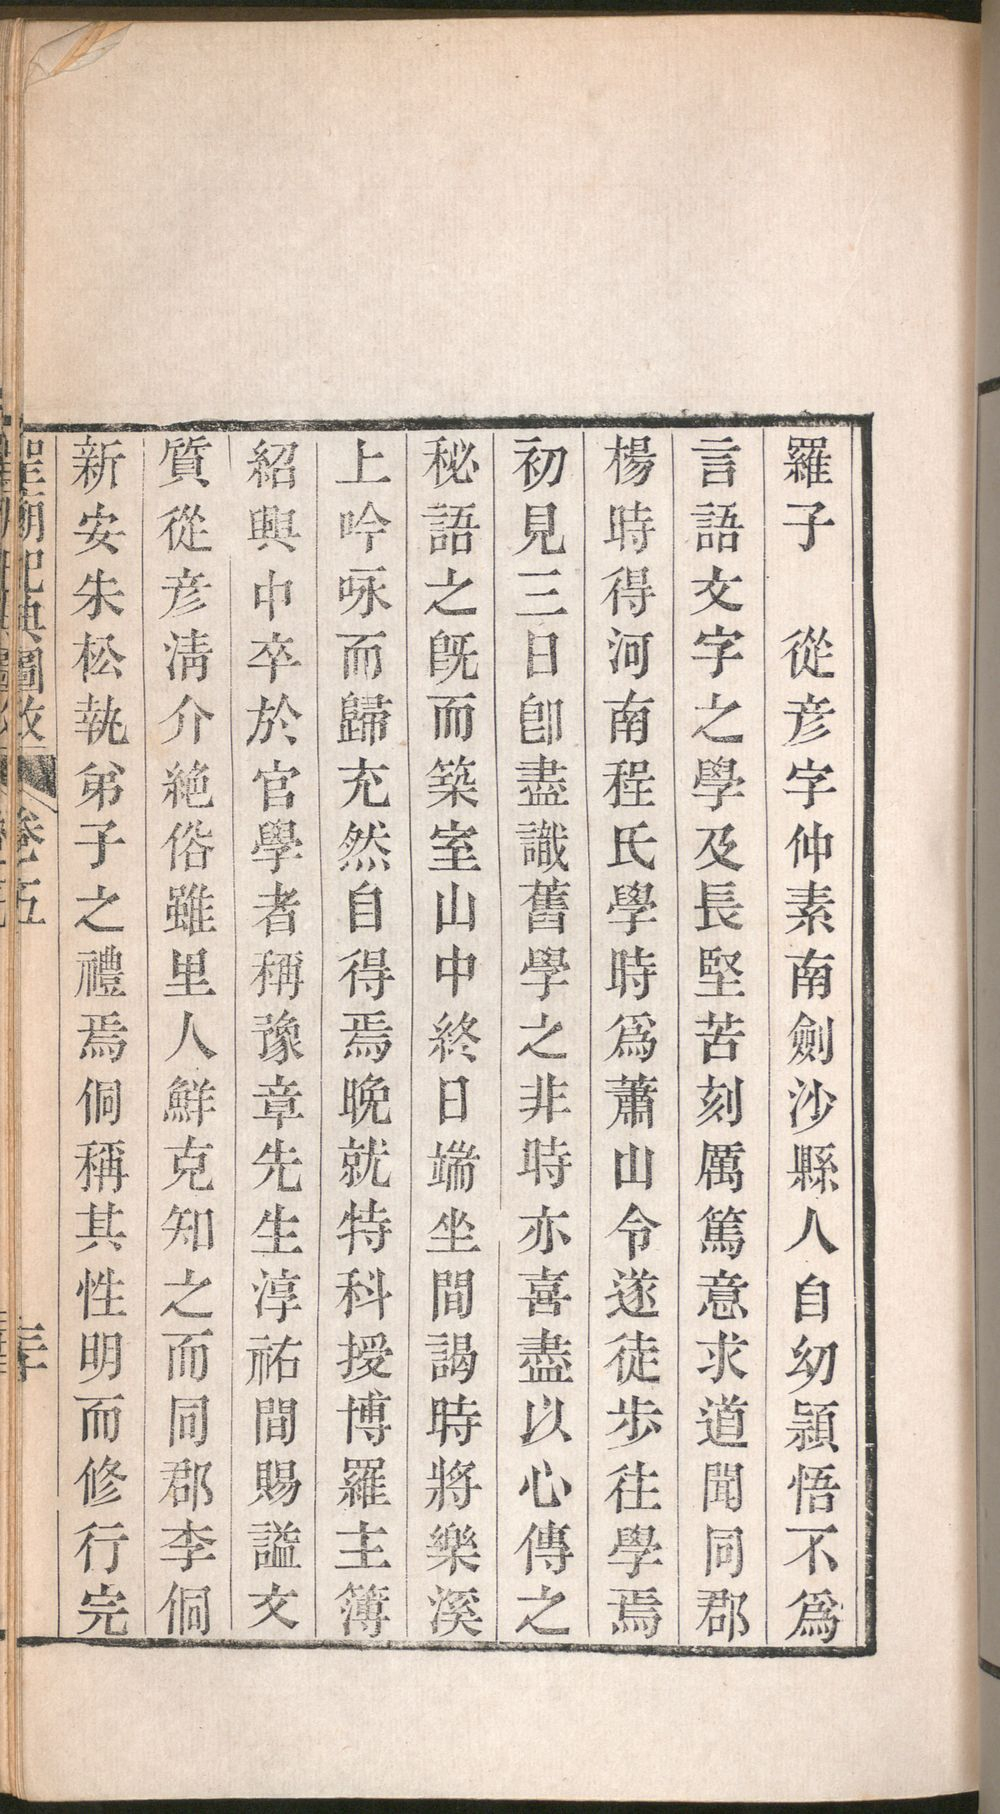 羅子　從彦字仲素南劍沙縣人自幼穎悟不爲
言語文字之學及長堅苦刻厲篤意求道聞同郡
楊時得河南程氏學時爲蕭山令遂徒步往學焉
初見三日卽盡識舊學之非時亦喜盡以心傳之
秘語之旣而築室山中終日端坐間謁時將樂溪
上吟咏而歸充然自得焉晚就特科授博羅主簿
紹興中卒於官學者稱豫章先生淳祐間賜諡文
質從彦淸介絶俗雖里人鮮克知之而同郡李侗
新安朱松執弟子之禮焉侗稱其性明而修行完
聖廟祀典圖攷　卷五